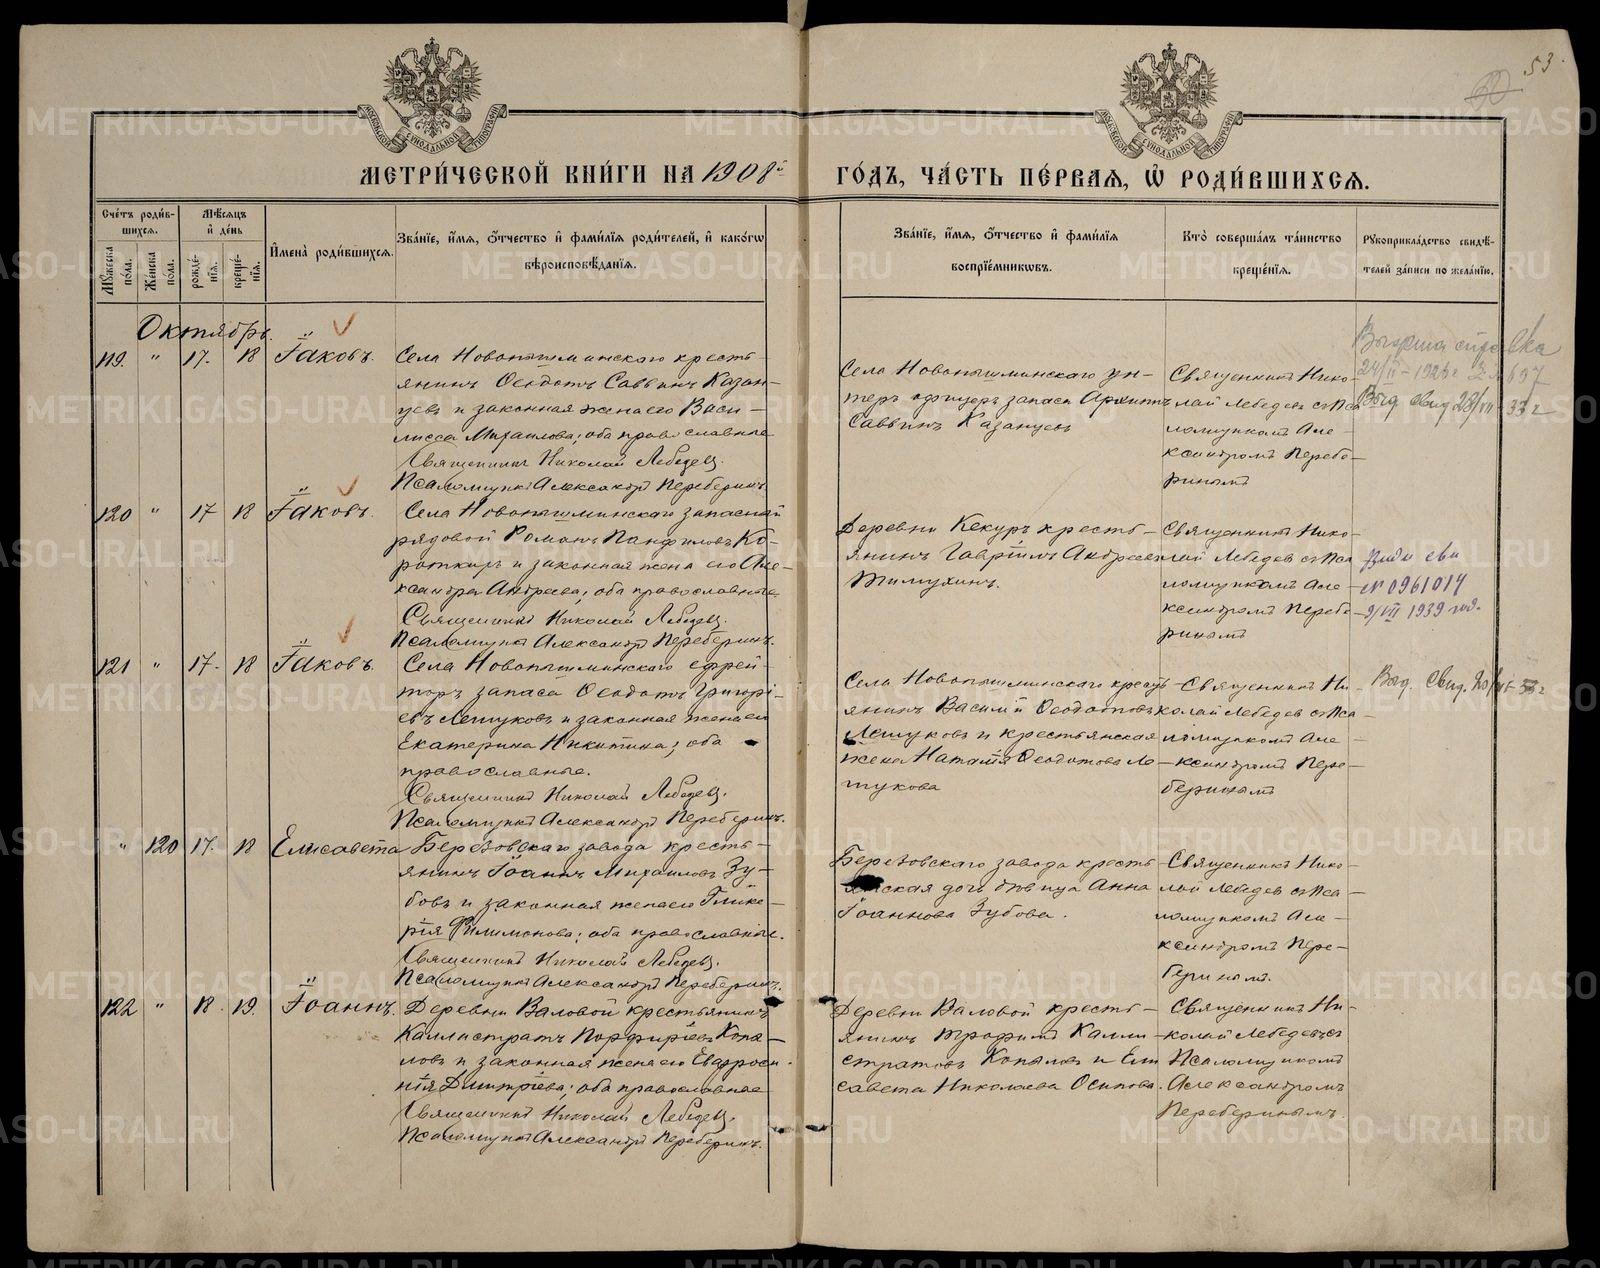 53.
МОСКОВСКОЙ СѴНОДАЛЬНОЙ ТИПОГРАФІИ
МОСКОВСКОЙ СѴНОДАЛЬНОЙ ТИПОГРАФІИ
МЕТРИ́ЧЕСКОЙ КНИ́ГИ НА 1908й
ГО́ДЪ, ЧА́СТЬ ПЕ́РВАѦ, Ѽ РОДИ́ВШИХСѦ.
Сче́тъ роди́в-
шихсѧ.
Мѣ́сѧцъ
и҆ де́нь
Мꙋ́жеска по́ла.
Же́нска по́ла.
рожде́-нїѧ.
креще́-нїѧ.
И҆мена̀ роди́вшихсѧ.
Зва́нїе, и҆́мѧ, ѻ҆́тчество и҆ фами́лїѧ роди́телей, и҆ како́гѡ
вѣроисповѣ́данїѧ.
Зва́нїе, и҆́мѧ, ѻ҆́тчество и҆ фами́лїѧ
воспрїе́мникѡвъ.
Кто̀ соверша́лъ та́инство
креще́нїѧ.
Рꙋкоприкла́дство свидѣ́-
телей за́писи по жела́нїю.
Октябрь.
119. " 17. 18 Іаковъ.
Села Новопышминскаго кресть-
янинъ Ѳеодотъ Саввинъ Казан-
цевъ и законная жена его Васи-
лисса Михаилова; оба православные
Священникъ Николай Лебедевъ.
Псаломщикъ Александръ Переберинъ.
Села Новопышминскаго ун-
теръ офицеръ запаса Архиппъ
Саввинъ Казанцевъ
Священникъ Нико-
лай Лебедевъ съ Пса
ломщикомъ Але-
ксандромъ Перебе-
ринымъ
справка
Выд. свид. 28/VII-33 г
120 " 17 18 Іаковъ.
Села Новопышминскаго запасный
рядовой Романъ Панфиловъ Ко-
роткихъ и законная жена его Але-
ксандра Андреева; оба православные
Священникъ Николай Лебедевъ.
Псаломщикъ Александръ Переберинъ.
Деревни Кекуръ кресть-
янинъ Гавріилъ Андреевъ
Тимухинъ.
Священникъ Нико-
лай Лебедевъ съ Пса
ломщикомъ Але-
ксандромъ Перебе-
ринымъ
№ 0961014
9/VII 1939 год.
121 " 17. 18 Іаковъ.
Села Новопышминскаго ефрей-
торъ запаса Ѳеодотъ Григорі-
евъ Лештуковъ и законная жена его
Екатерина Никитина; оба
православные.
Священникъ Николай Лебедевъ.
Псаломщикъ Александръ Переберинъ.
Села Новопышминскаго кресть
янинъ Василій Ѳеодотовъ
Лештуковъ и крестьянская
жена Наталія Ѳеодотова Ле-
штукова
Священникъ Ни-
колай Лебедевъ съ Пса
ломщикомъ Але-
ксандромъ Пере-
беринымъ
Выд. Свид.
" 120 17. 18 Елисавета
Березовскаго завода кресть-
янинъ Іоаннъ Михаиловъ Зу-
бовъ и законная жена его Глике-
рія Филимонова; оба православные.
Священникъ Николай Лебедевъ.
Псаломщикъ Александръ Переберинъ.
Березовскаго завода кресть
янская дочь дѣвица Анна
Іоаннова Зубова.
Священникъ Нико-
лай Лебедевъ съ Пса-
ломщикомъ Але-
ксандромъ Пере-
беринымъ.
122 " 18. 19. Іоаннъ.
Деревни Валовой крестьянинъ
Каллистратъ Порфиріевъ Копы-
ловъ и законная жена его Евфроси-
нія Димитріева; оба православные
Священникъ Николай Лебедевъ.
Псаломщикъ Александръ Переберинъ.
Деревни Валовой кресть-
янинъ Трофимъ Калли
стратовъ Копыловъ и Ели
савета Николаева Осипова.
Священникъ Ни-
колай Лебедевъ съ
Псаломщикомъ
Александромъ
Переберинымъ.